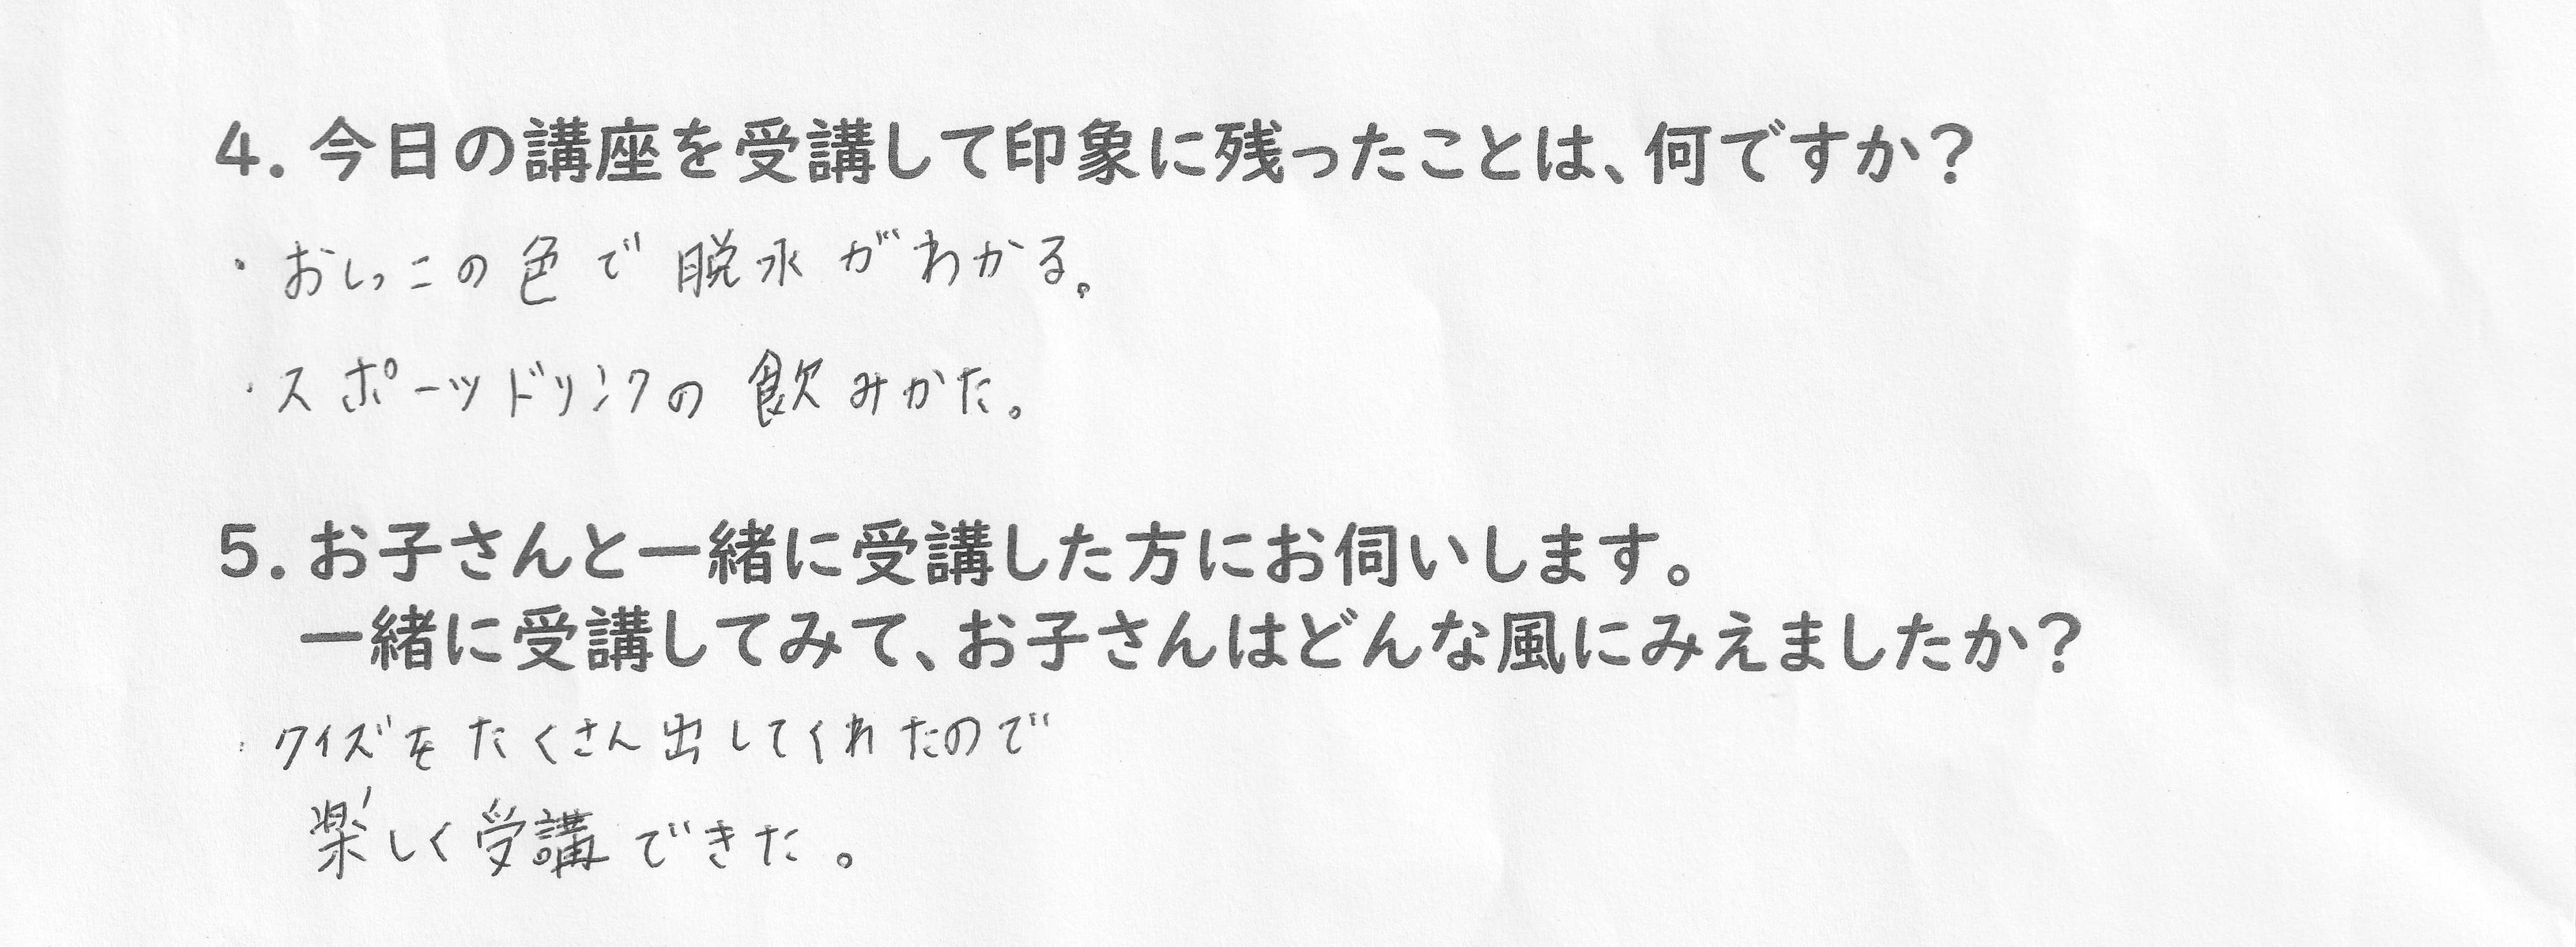 4. 今日の講座を受講して印象に残ったことは、何ですか？
・おしっこの色で脱水がわかる。
・スポーツドリンクの飲みかた。
5. お子さんと一緒に受講した方にお伺いします。
一緒に受講してみて、お子さんはどんな風にみえましたか？
・クイズをたくさん出してくれたので
楽しく受講できた。